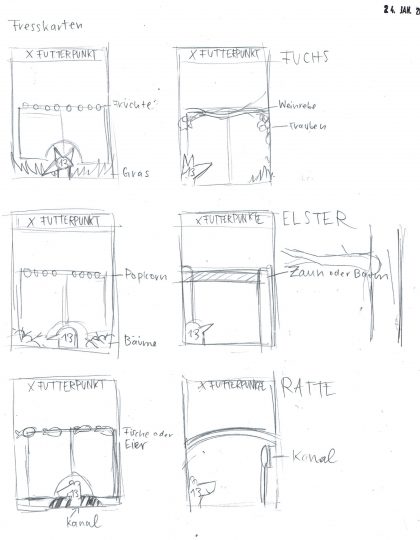 24. JAN. 2
Fresskarten
X FUTTERPUNKT
X FUTTERPUNKT
FUCHS
Früchte
Weinrebe
Trauben
13
13
Gras
X FUTTERPUNKT
X FUTTERPUNKTE
ELSTER
Popcorn
Zaun oder Baum
13
13
Bäume
X FUTTERPUNKT
X FUTTERPUNKTE
RATTE
Fische oder
Eier
Kanal
13
13
Kanal